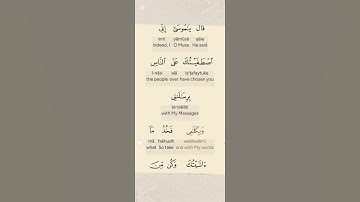 قَالَ يَـٰمُوسَىٰٓ إِنِّى
innī yāmūsā qāla
Indeed, I O Musa He said
ٱصْطَفَيْتُكَ عَلَى ٱلنَّاسِ
l-nāsi ʿalā iṣ'ṭafaytuka
the people over have chosen you
بِرِسَـٰلَـٰتِى
birisālātī
with My Messages
وَبِكَلَـٰمِى فَخُذْ مَآ
mā fakhudh wabikalāmī
what So take and with My words
ءَاتَيْتُكَ وَكُن مِّنَ